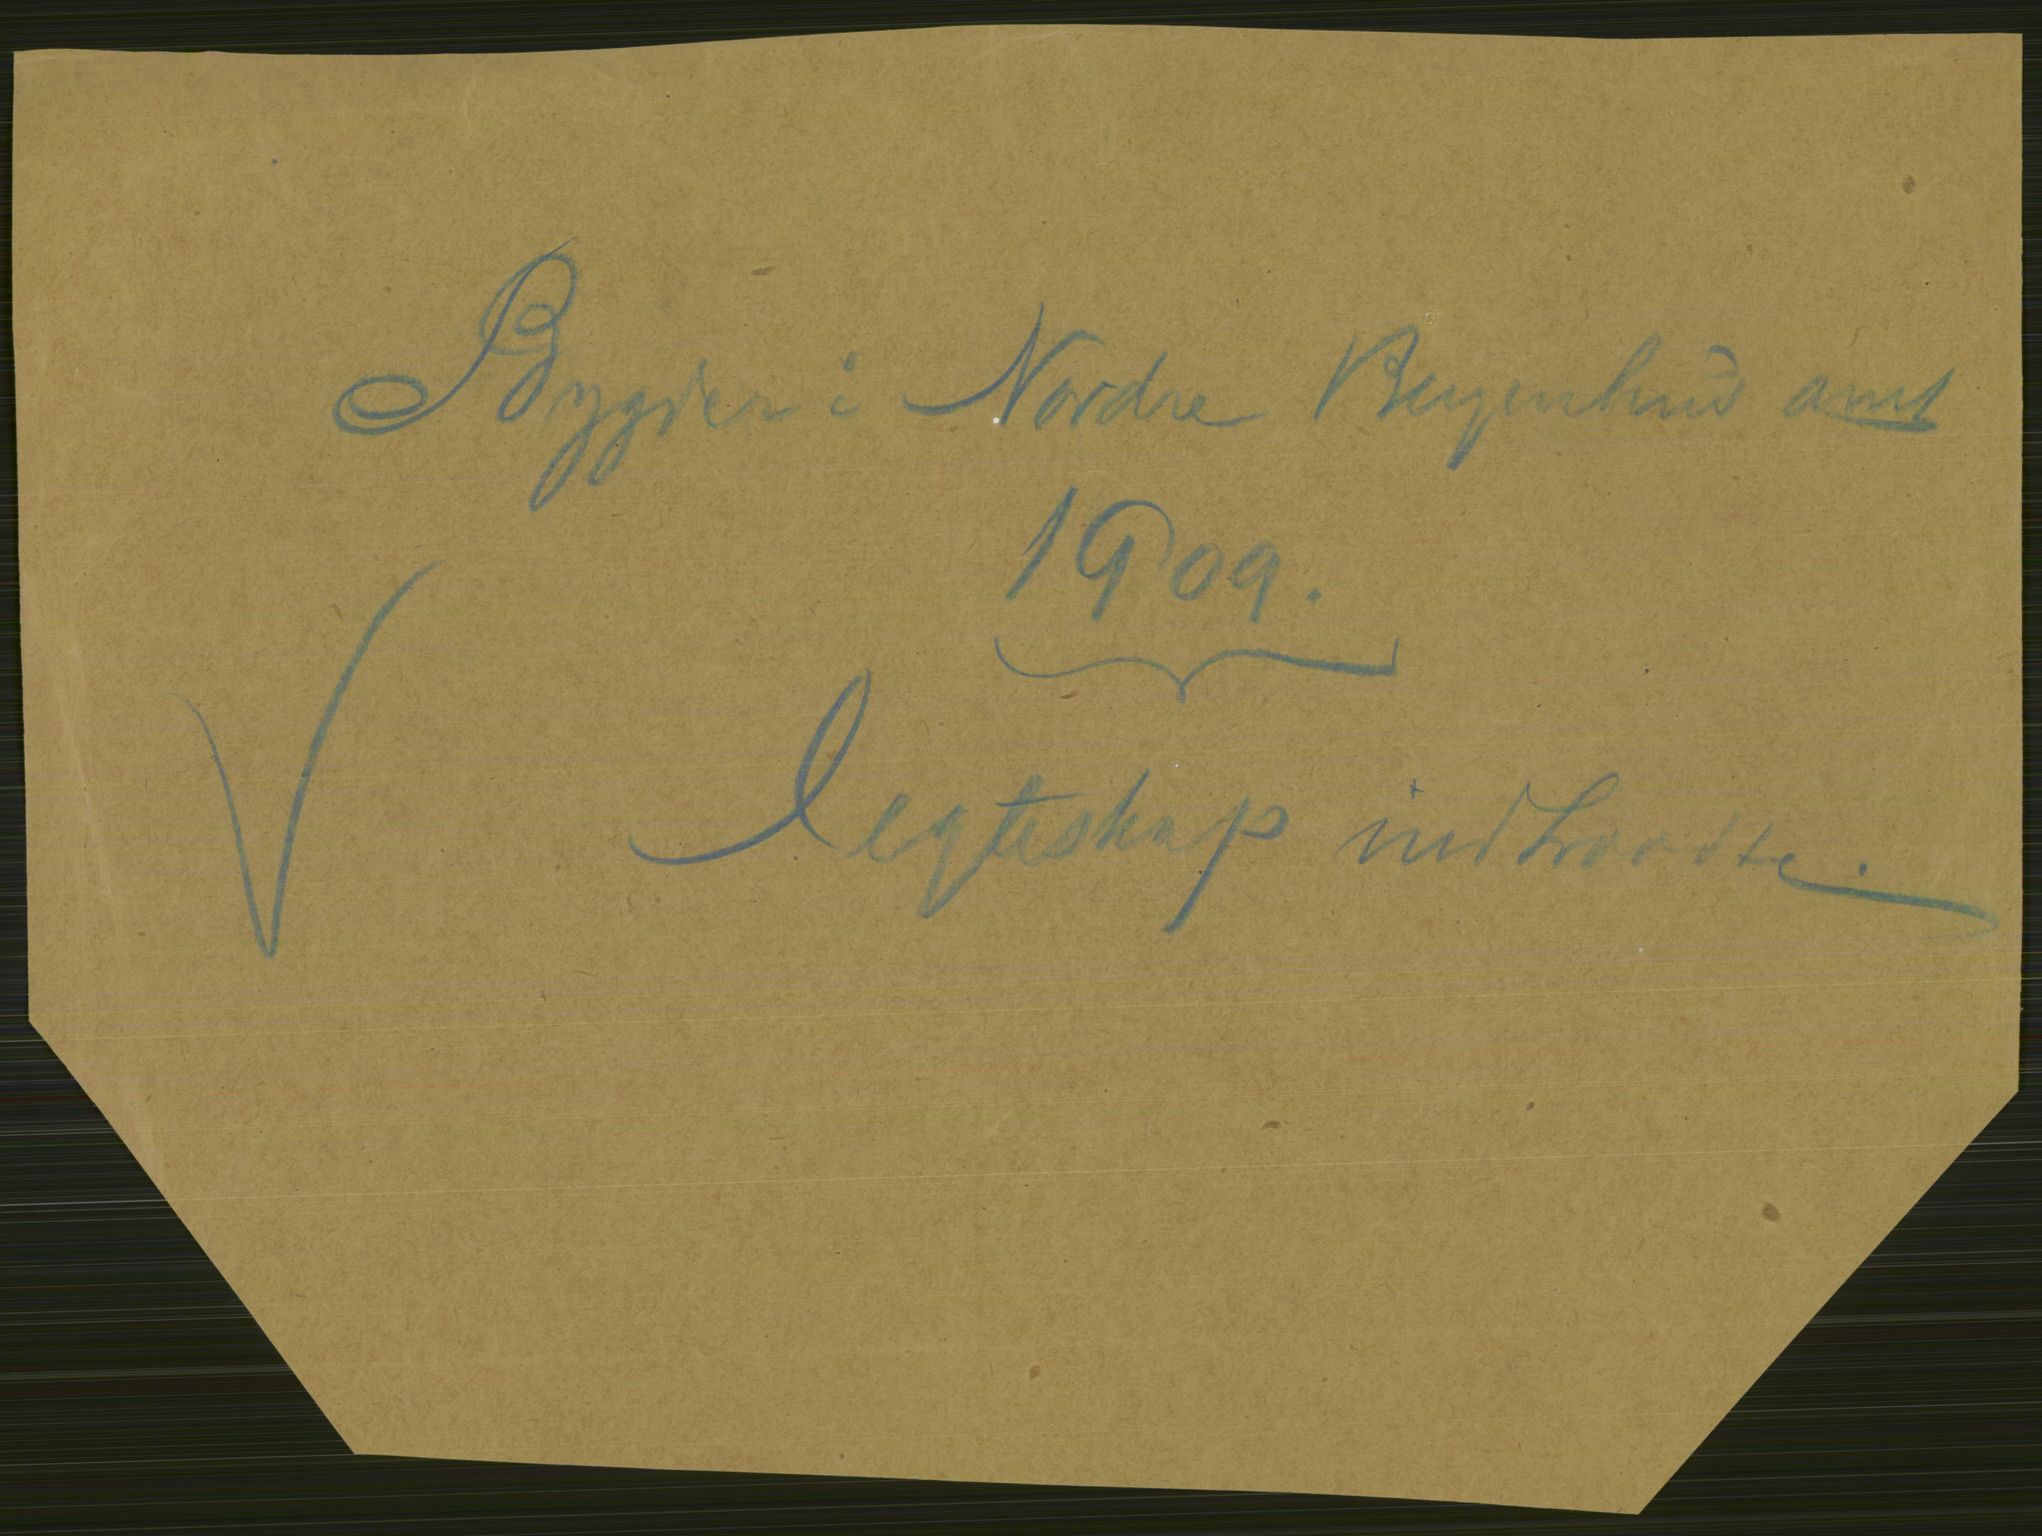 Bygder i Nordre Bergenhus amt
1909.
Ægteskap indtraadte.